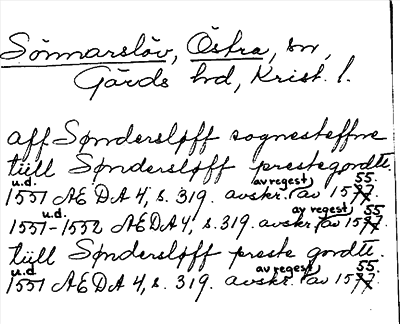 Sönnarslöv, Östra, sn,
Gärds hd, Krist. l.
aff Søndersløff sognesteffne
tüll Søndersløff prestegordtt.
u.d. av regest 55.
1551 ÆDA 4, s. 319. avskr. av 1577.
u.d. av regest 55
1551-1552 ÆDA 4, s. 319. avskr. av 1577.
tüll Søndersløff preste gordtt.
u.d. av regest 55.
1551 ÆDA 4, s. 319. avskr. av 1577.